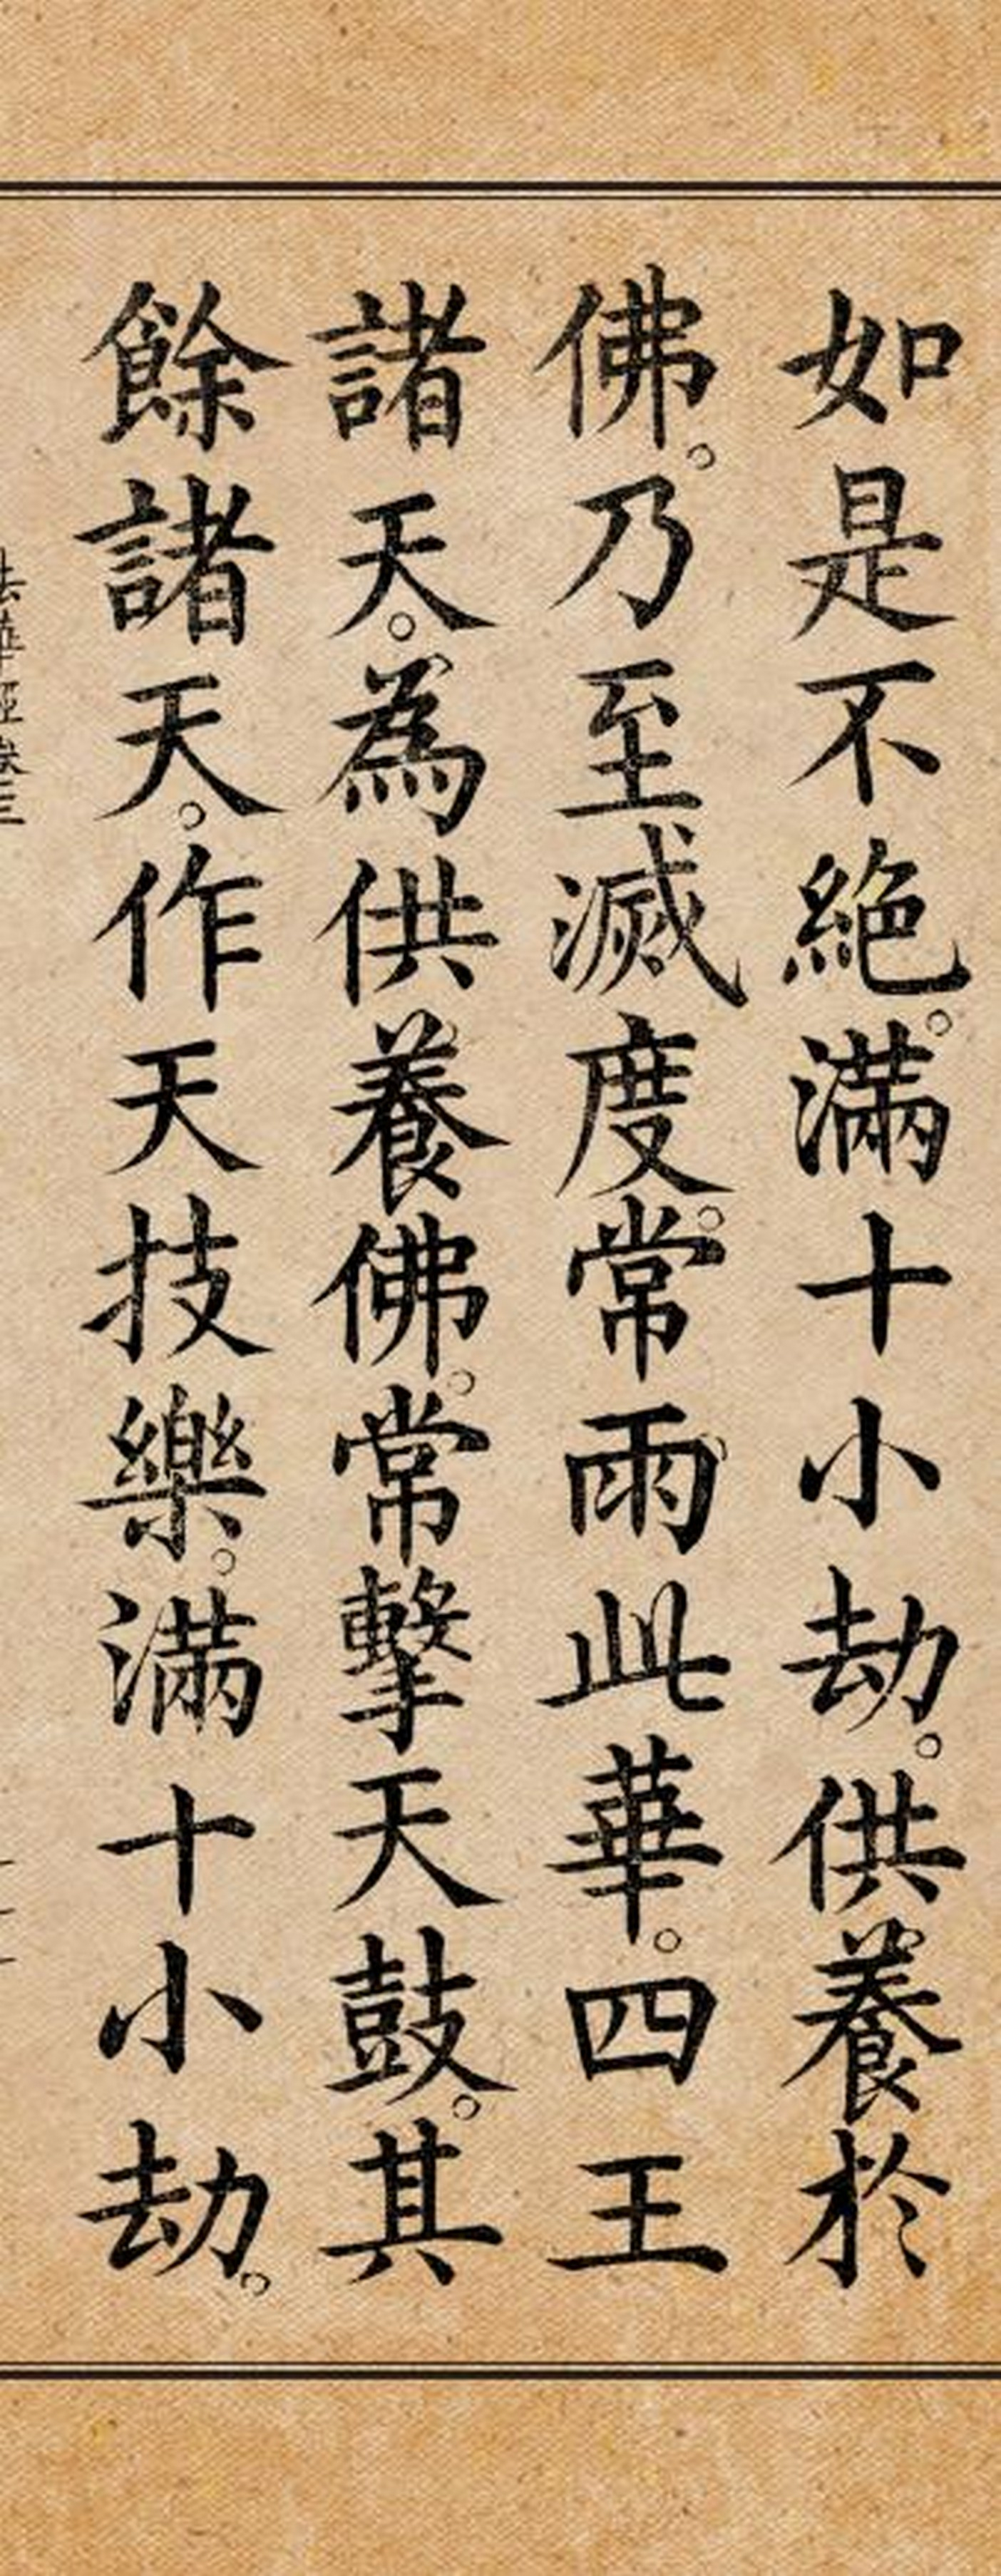 如是不絕。滿十小劫。供養於
佛。乃至滅度。常雨此華。四王
諸天。為供養佛。常擊天鼓。其
餘諸天。作天技樂。滿十小劫。
法華經卷三